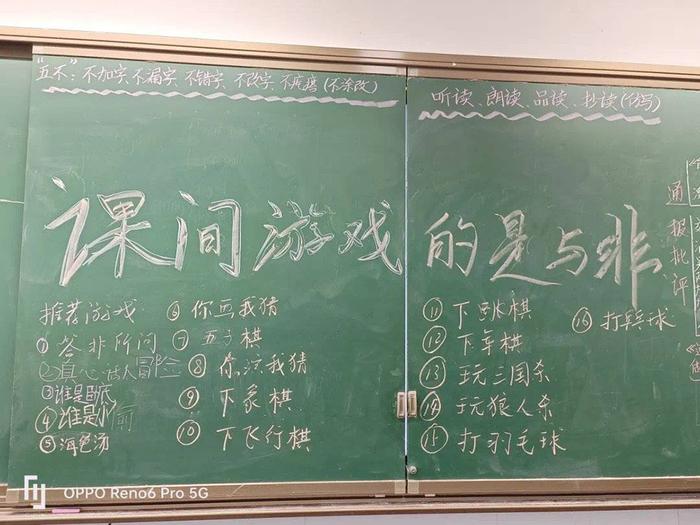 "五不"：不加字、不漏字、不错字、不改字、不疙瘩(不涂改)
听读、朗读、品读、抄读(仿写)
课间游戏的是与非
推荐游戏
① 答非所问
② 真心话大冒险
③ 谁是卧底
④ 谁是小偷
⑤ 海龟汤
⑥ 你画我猜
⑦ 五子棋
⑧ 你演我猜
⑨ 下象棋
⑩ 下飞行棋
⑪ 下跳棋
⑫ 下军棋
⑬ 玩三国杀
⑭ 玩狼人杀
⑮ 打羽毛球
⑯ 打乒乓球
通报批评
OPPO Reno6 Pro 5G